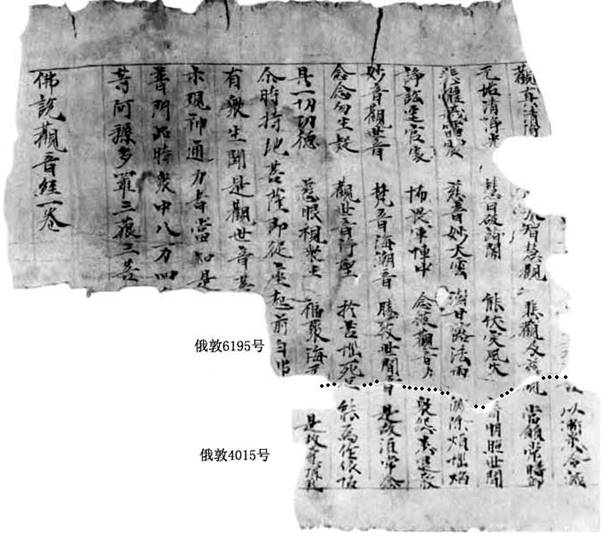 以漸悉令滅
觀真清淨 大智慧觀 悲觀及慈觀 常願常瞻仰
无垢清淨光 慧日破諸闇 能伏災風火 普明照世間
悲體戒雷震 慈音妙大雲 澍甘露法雨 滅除煩惱焰
諍訟逕官處 怖畏軍陣中 念彼觀音力 衆怨悉退散
妙音觀世音 梵音海潮音 勝彼世間音 是故須常念
念念勿生疑 觀世音淨聖 於苦惱死厄 能為作依怙
具一切功德 慈眼視衆生 福聚海无 是故應頂礼
尒時持地菩薩即從座起前白
有衆生聞是觀世音菩
示現神通力者當知是
普門品時衆中八万四
等阿耨多羅三藐三菩
佛說觀音經一卷
俄敦6195号
俄敦4015号